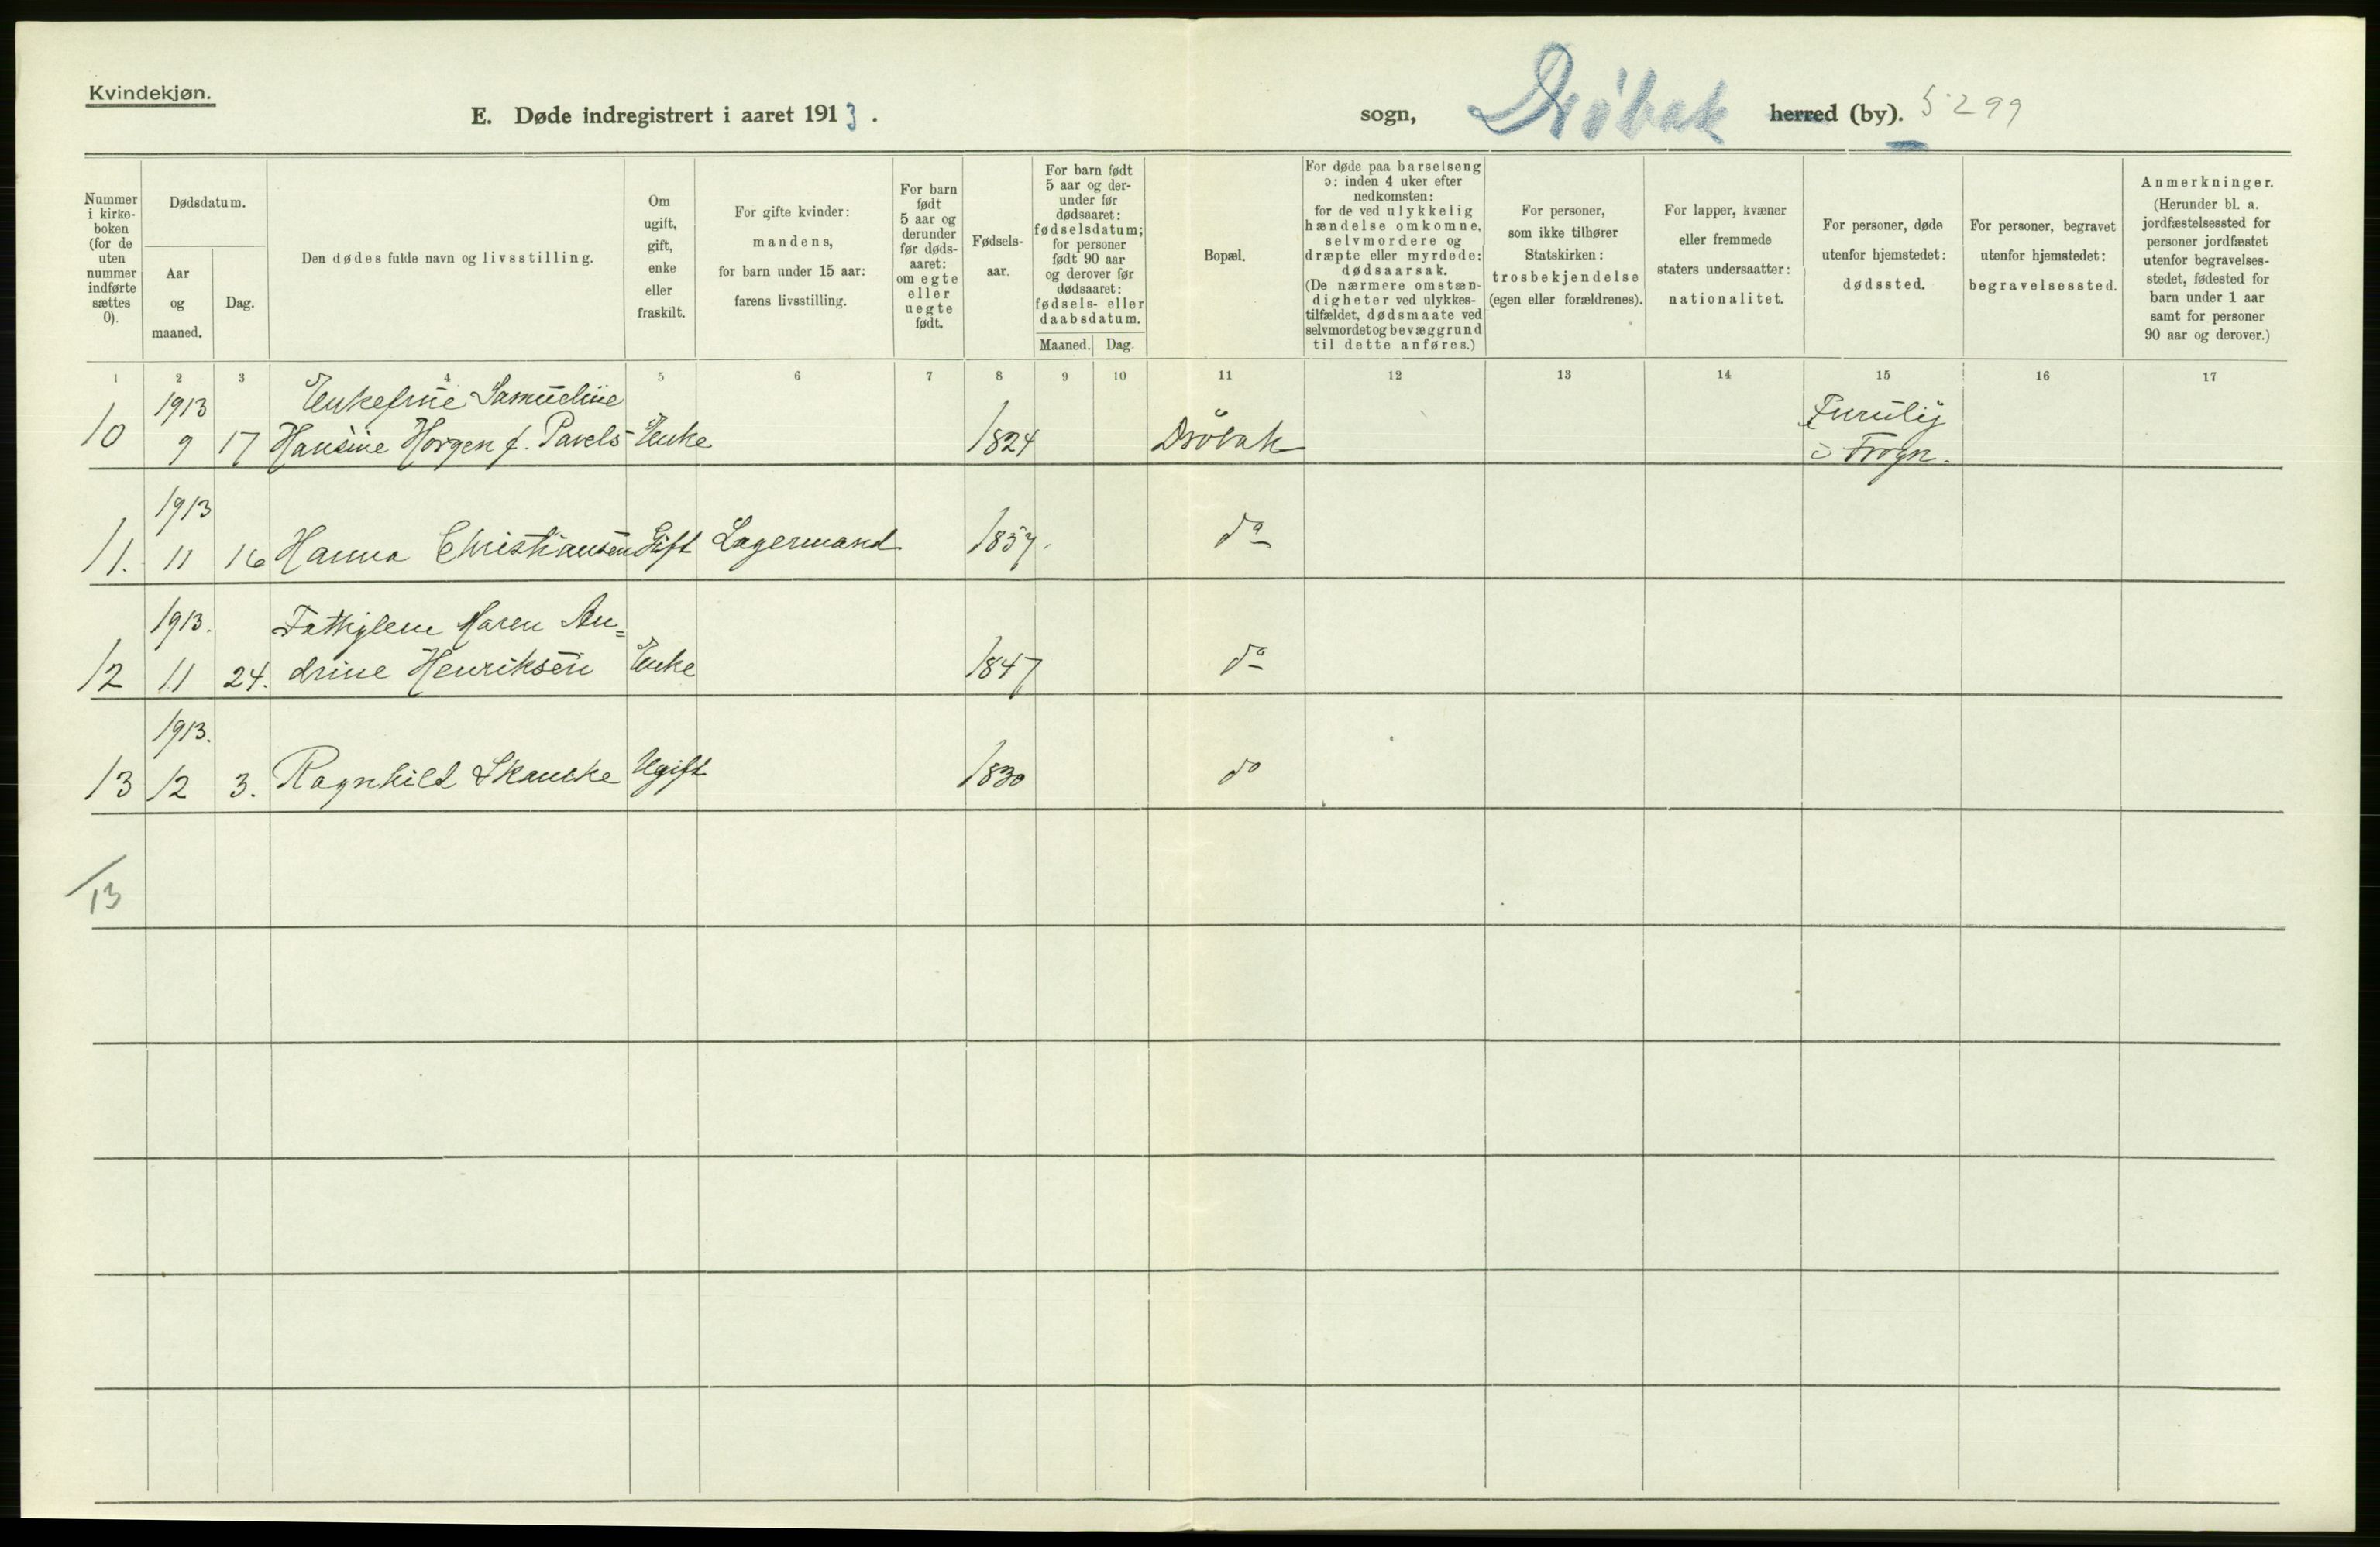 Kvindekjøn.
E. Døde indregistrert i aaret 1913.
sogn, Drøbak herred (by). 5299
Nummer i kirke-boken (for de uten nummer indførte sættes 0).
Dødsdatum.
Aar og maaned.
Dag.
Den dødes fulde navn og livsstilling.
Om ugift, gift, enke eller fraskilt.
For gifte kvinder: mandens, for barn under 15 aar: farens livsstilling.
For barn født 5 aar og derunder før døds-aaret: om egte eller uegte født.
Fødsels-aar.
For barn født 5 aar og der-under før dødsaaret: fødselsdatum; for personer født 90 aar og derover før dødsaaret: fødsels- eller daabsdatum.
Maaned. Dag.
Bopæl.
For døde paa barselseng ɔ: inden 4 uker efter nedkomsten: for de ved ulykkelig hændelse omkomne, selvmordere og dræpte eller myrdede: dødsaarsak. (De nærmere omstæn-digheter ved ulykkes-tilfældet, dødsmaate ved selvmordet og bevæggrund til dette anføres.)
For personer, som ikke tilhører Statskirken: trosbekjendelse (egen eller forældrenes).
For lapper, kvæner eller fremmede staters undersaatter: nationalitet.
For personer, døde utenfor hjemstedet: dødssted.
For personer, begravet utenfor hjemstedet: begravelsessted.
Anmerkninger. (Herunder bl. a. jordfæstelsessted for personer jordfæstet utenfor begravelses-stedet, fødested for barn under 1 aar samt for personer 90 aar og derover.)
1 2 3 4 5 6 7 8 9 10 11 12 13 14 15 16 17
1913 Enkefrue Samueline Furulij
10 9 17 Hansine Horgen f. Pavels Enke 1824 Drøbak i Frogn.
1913
11. 11 16 Hanna Christiansen Gift Lagermand 1857. do
1913. Fattiglem Maren An=
12 11 24. drine Henriksen Enke 1847 do
1913.
13 12 3. Ragnhild Skancke Ugift 1830 do
13